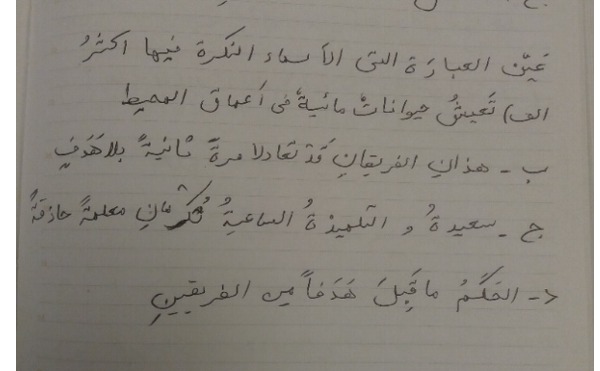 عَيّن العبارَة التی الأسماء النکرة فیها اکثرُ
الف) تَعیشُ حیواناتٌ مائیةٌ فی أعماق المحیط
ب - هذانِ الفریقانِ قَدْ تعادلا مرةً ثانیةً بلاهَدَفٍ
ج - سعیدةُ و التلمیذةُ الساعیةُ تُکرمانِ معلمةً حاذقةً
د - الحَکَمُ ما قَبِلَ هَدَفاً مِن الفریقینِ